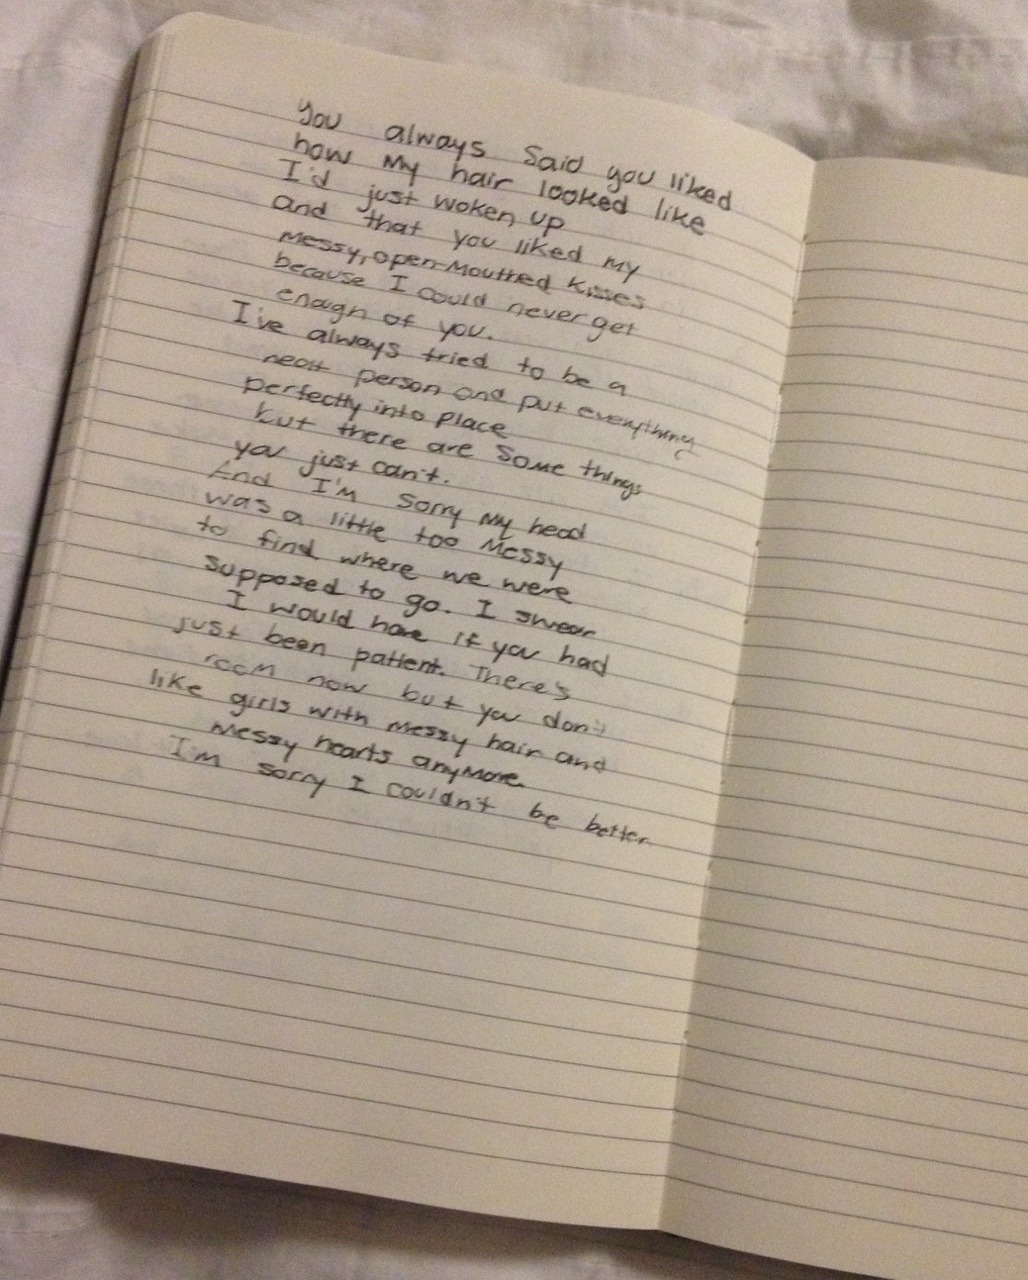 You always said you liked
how my hair looked like
I'd just woken up
and that you liked my
messy, open-mouthed kisses
because I could never get
enough of you.
I've always tried to be a
neat person and put everything
perfectly into place
but there are some things
you just can't.
And I'm sorry my head
was a little too messy
to find where we were
supposed to go. I swear
I would have if you had
just been patient. There's
room now but you don't
like girls with messy hair and
messy hearts anymore.
I'm sorry I couldn't be better.